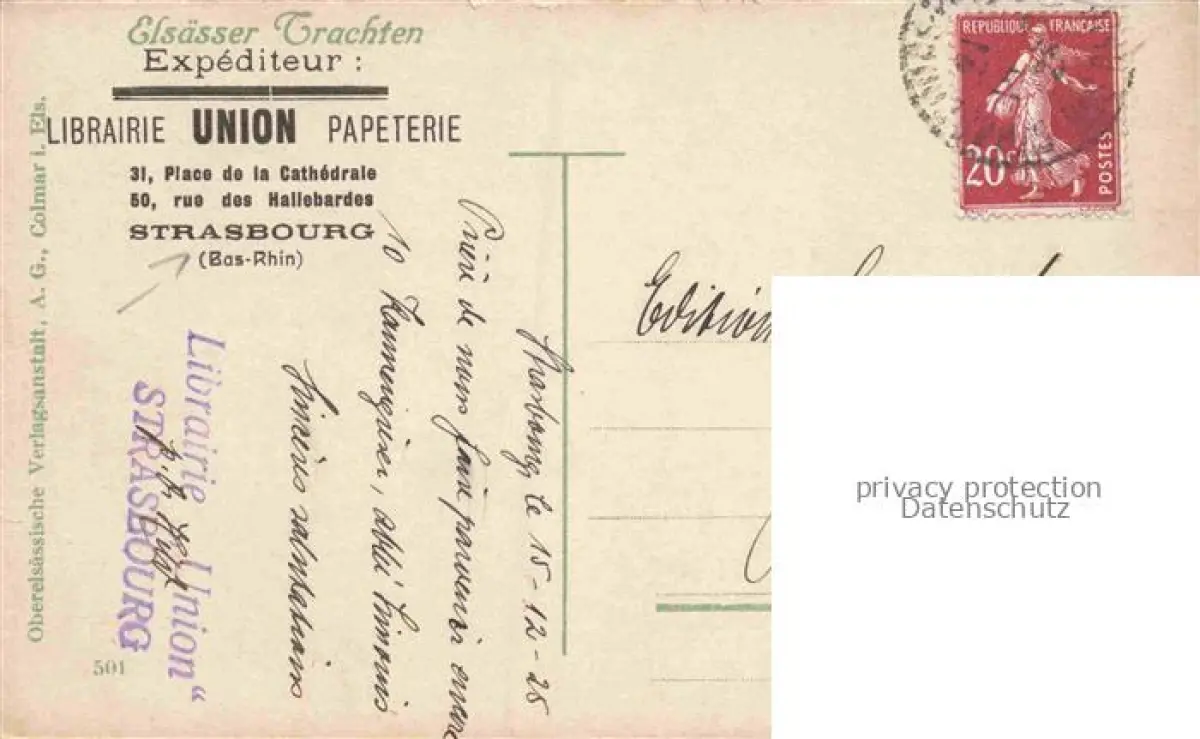 Elsässer Trachten
Expéditeur :
LIBRAIRIE UNION PAPETERIE
31, Place de la Cathédrale
50, rue des Hallebardes
STRASBOURG
(Bas-Rhin)
REPUBLIQUE FRANÇAISE
20c
POSTES
Strasbourg, le 15-12-25
Prière de nous faire parvenir encore
10 abbé
Sincères salutations
Librairie „Union“
STRASBOURG
Edition
Oberelsässische Verlagsanstalt, A. G., Colmar i. Els.
501
privacy protection
Datenschutz